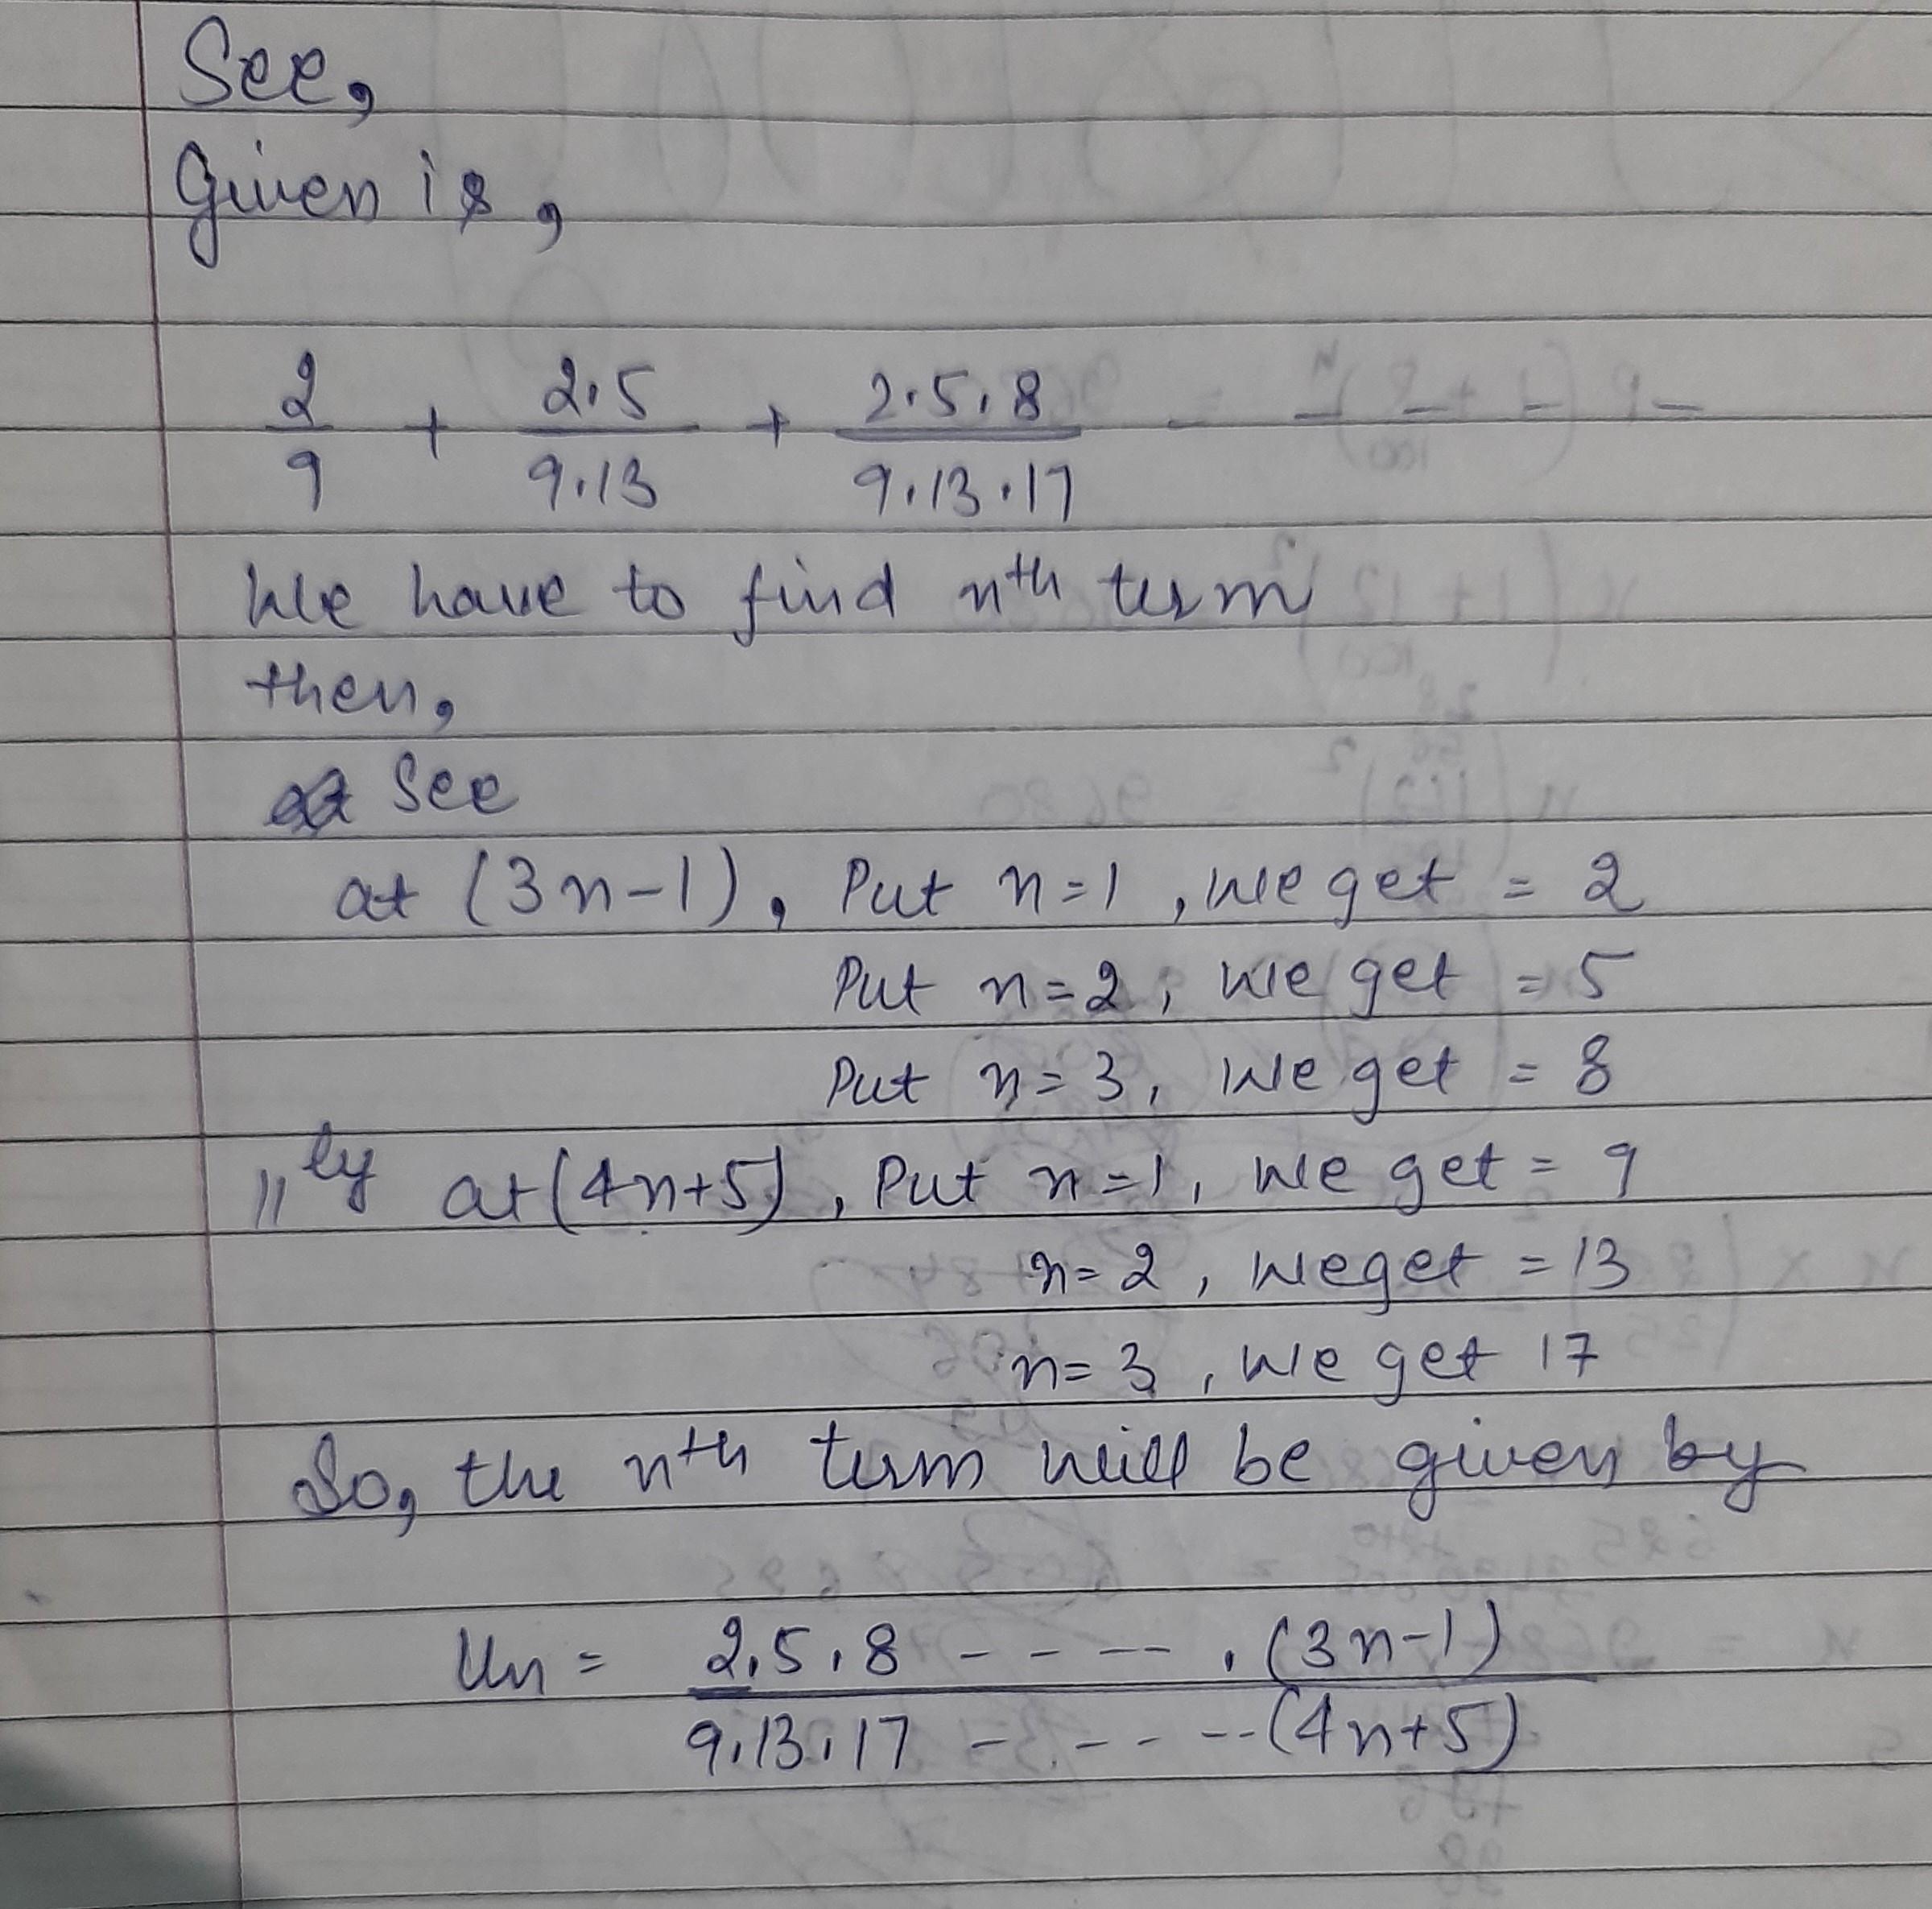 See,
Given is,
2/9 + 2.5/9.13 + 2.5.8/9.13.17 - - - -
We have to find nth term
then,
See
at (3n-1), Put n=1, we get = 2
Put n=2, we get = 5
Put n=3, we get = 8
||ly at (4n+5), Put n=1, we get = 9
n=2, we get = 13
n=3, we get 17
So, the nth term will be given by
Un = 2.5.8 - - - - . (3n-1)
9.13.17 - - - - - (4n+5)